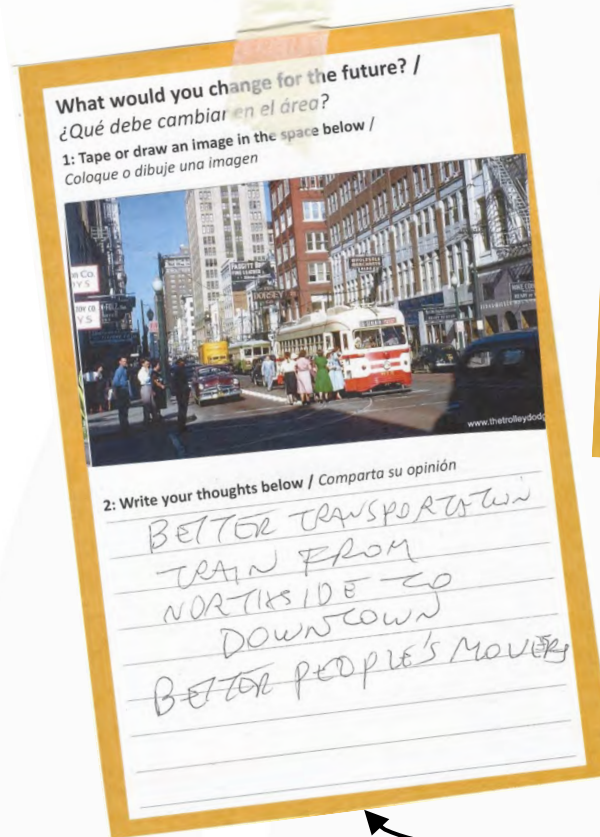 What would you change for the future? /
¿Qué debe cambiar en el área?
1: Tape or draw an image in the space below /
Coloque o dibuje una imagen
DORSEY
www.thetrolleydodg
2: Write your thoughts below / Comparta su opinión
BETTER TRANSPORTATION
TRAIN FROM
NORTHSIDE TO
DOWNTOWN
BETTER PEOPLE'S MOVERS